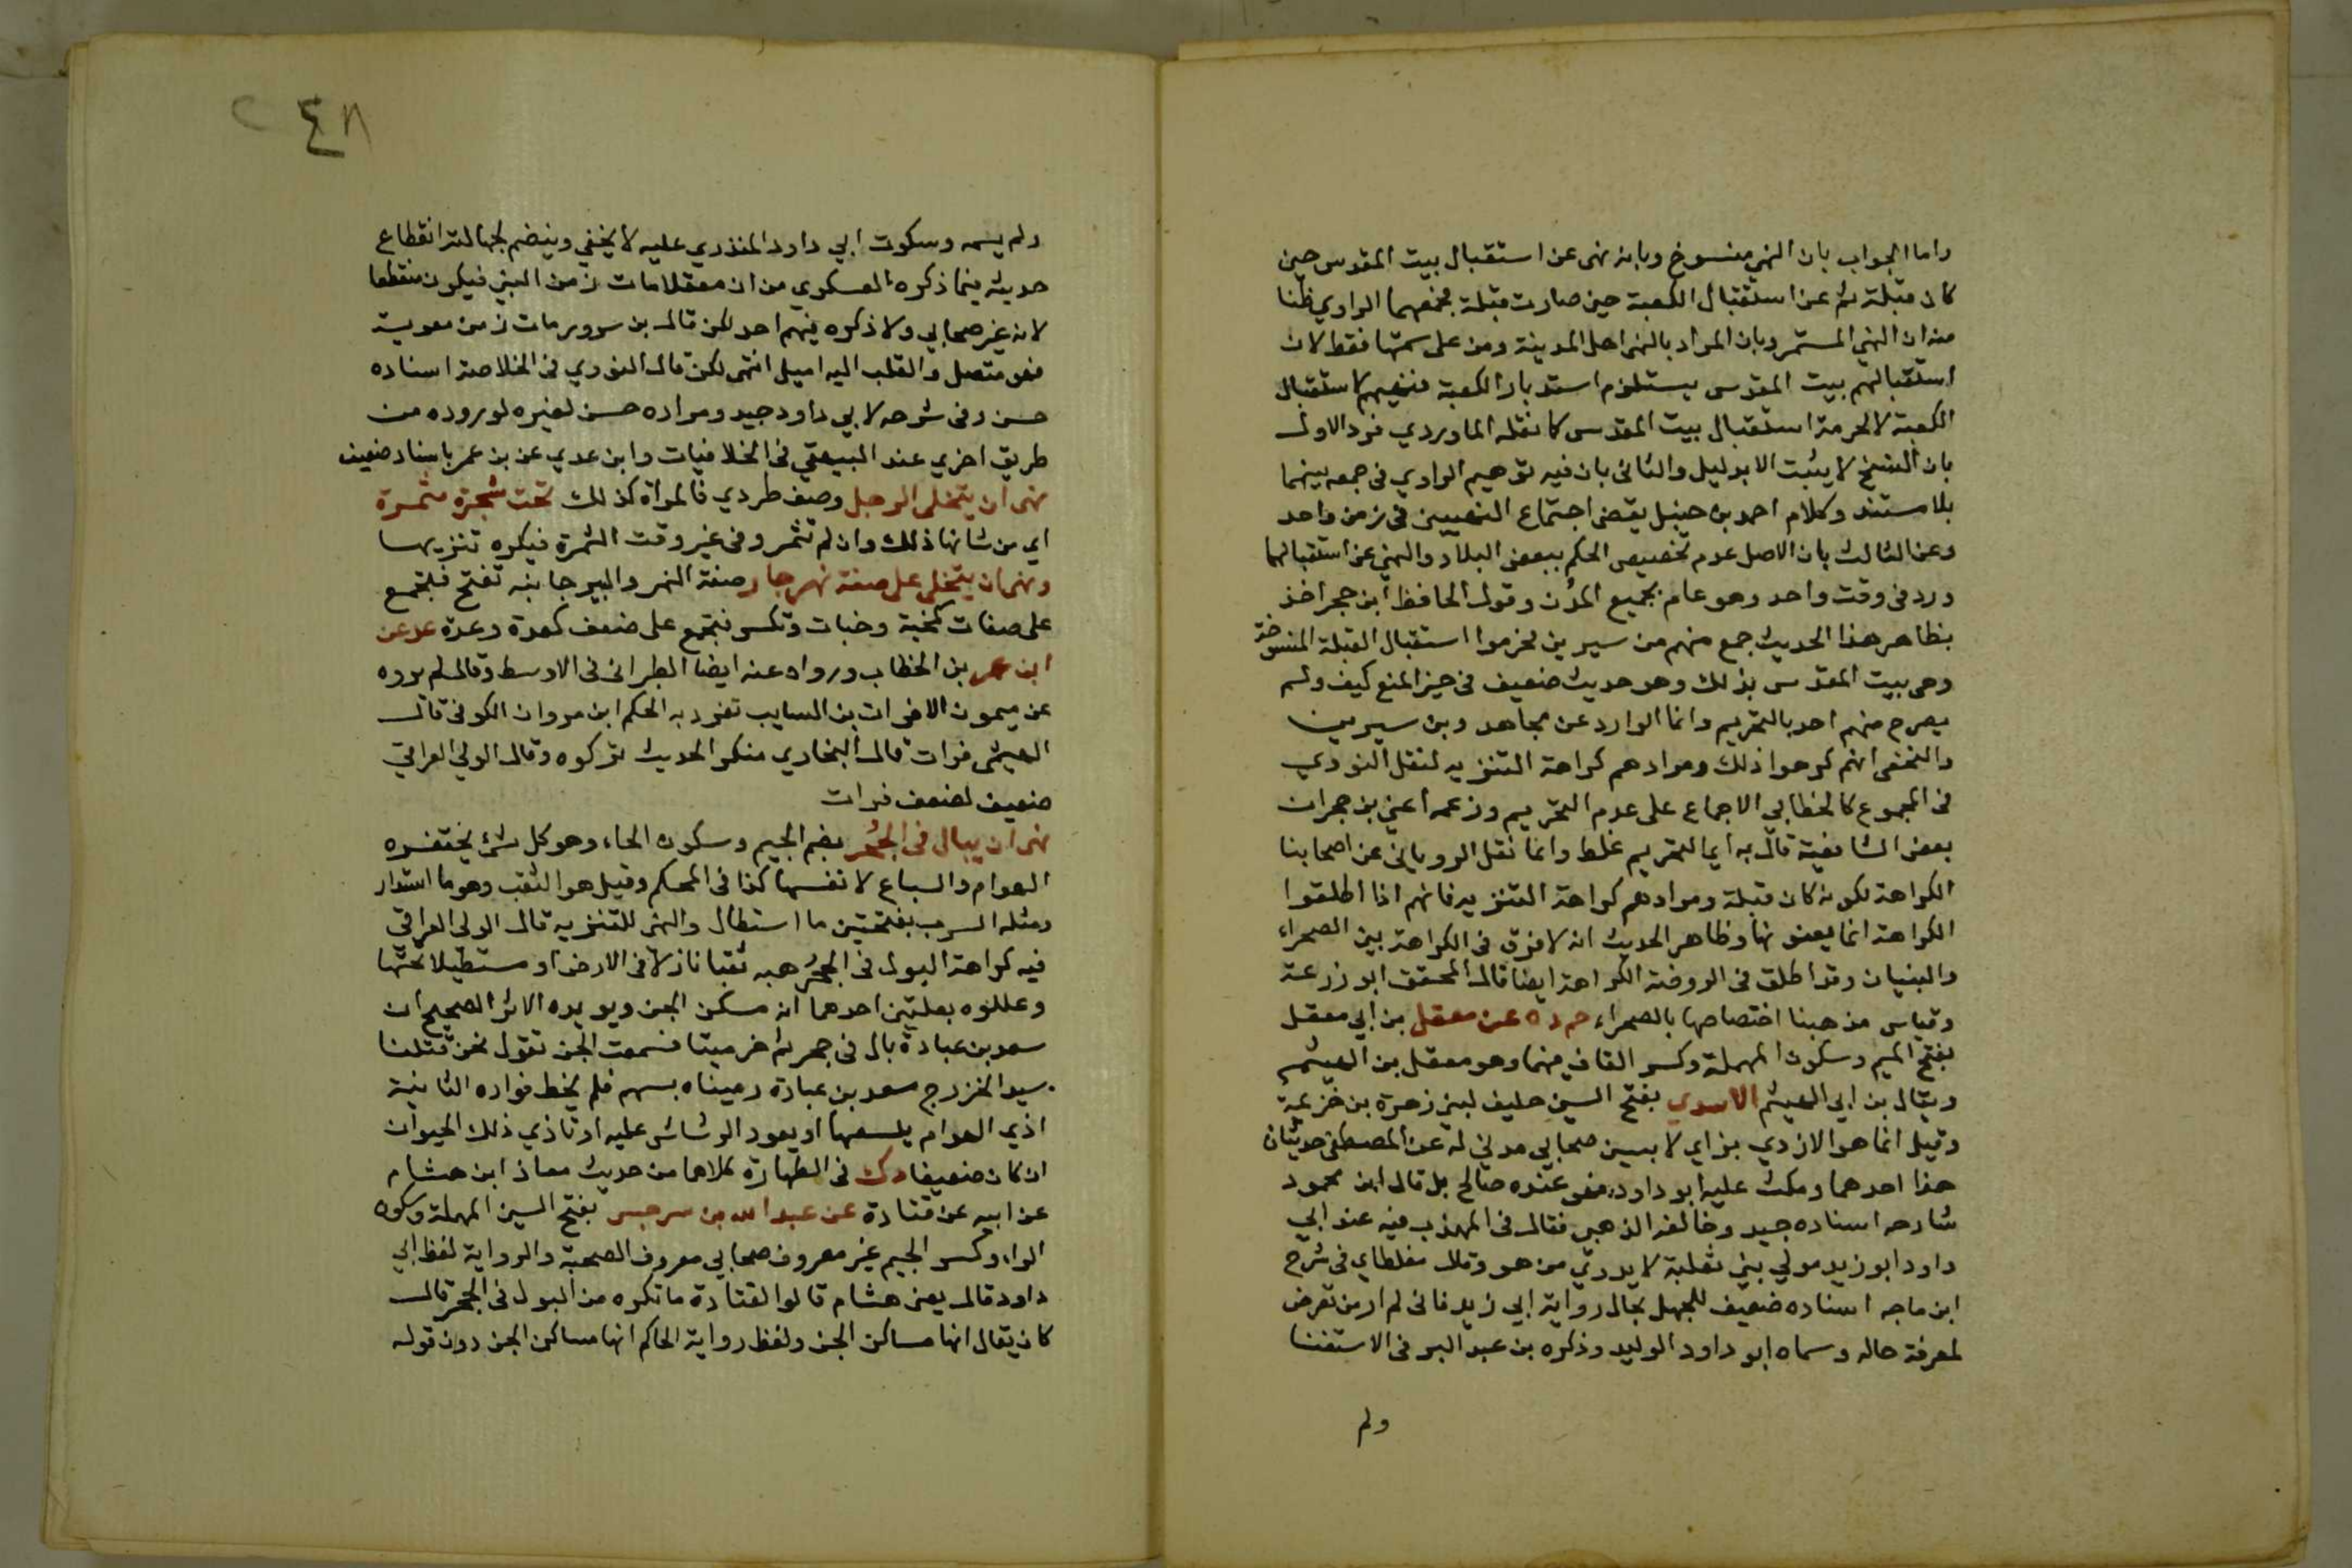 واما الجواب بان النهي منسوخ وبانه نهى عن استقبال بيت المقدس حين
كان قبلة ثم عن استقبال الكعبة حين صارت قبلة فجمعهما الراوي ظنا
منه ان النهي المستمر وبان المراد بالنهي اهل المدينة ومن على سمتها فقط لان
استقبالهم بيت المقدس يستلزم استدبار الكعبة فنهيهم لاستقبال
الكعبة لا لحرمة استقبال بيت المقدس كما نقله الماوردي فرد الاول
بان النسخ لا يثبت الا بدليل والثاني بان فيه توهيم الراوي في جمعه بينهما
بلا مستند وكلام احمد بن حنبل يقتضي اجتماع النهيين في زمن واحد
وعن الثالث بان الاصل عدم تخصيص الحكم ببعض البلاد والنهي عن استقبالهما
ورد في وقت واحد وهو عام بجميع المدن وقول الحافظ ابن حجر اخذ
بظاهر هذا الحديث جمع منهم من سيرين فحرموا استقبال القبلة المنسوخة
وهي بيت المقدس بذلك وهو حديث ضعيف في حيز المنع كيف ولم
يصرح منهم احد بالتحريم وانما الوارد عن مجاهد وبن سيرين
والنخعي انهم كرهوا ذلك ومرادهم كراهة التنزيه لنقل النووي
في المجموع كالخطابي الاجماع على عدم التحريم وزعمه اعني بن حجر ان
بعض الشافعية قال به اي التحريم غلط وانما نقل الروياني عن اصحابنا
الكراهة لكونه كان قبلة ومرادهم كراهة التنزيه فانهم اذا اطلقوا
الكراهة انما يعنونها وظاهر الحديث انه لا فرق في الكراهة بين الصحراء
والبنيان وقد اطلق في الروضة الكراهة ايضا قال المحقق ابو زرعة
وقياس مذهبنا اختصاصها بالصحراء حم د ه عن معقل بن ابي معقل
بفتح الميم وسكون المهملة وكسر القاف فيهما وهو معقل بن الهيثم
ويقال بن ابي الهيثم الاسدي بفتح السين حليف لبني زهرة بن خزيمة
وقيل انما هو الازدي بزاي لا بسين صحابي مدني له عن المصطفى حديثان
هذا احدهما وسكت عليه ابو داود فهو عنده صالح بل قال ابن محمود
شارحه اسناده جيد وخالفه الذهبي فقال في المهذب فيه عند ابي
داود ابو زيد مولي بني ثعلبة لا يدري من هو وقال مغلطاي في شرح
ابن ماجه اسناده ضعيف للجهل بحال رواية ابي زيد فاني لم ار من تعرض
لمعرفة حاله وسماه ابو داود الوليد وذكره بن عبد البر في الاستغنا
ولم
٢٤٨
ولم يسمه وسكوت ابي داود المنذري عليه لا يخفي وينضم لجهالته انقطاع
حديثه فيما ذكره العسكري من ان معقلا مات زمن النبي فيكون منقطعا
لانه غير صحابي ولا ذكره فيهم احد لكن قال بن سرور مات زمن معوية
فهو متصل والقلب اليه اميل انتهى لكن قال النووي في الخلاصة اسناده
حسن وفي شرحه لابي داود جيد ومراده حسن لغيره لوروده من
طريق اخري عند البيهقي في الخلافيات وابن عدي عن بن عمر باسناد ضعيف
نهى ان يتخلى الرجل وصف طردي فالمراة كذلك تحت شجرة مثمرة
اي من شانها ذلك وان لم تثمر وفي غير وقت الثمرة فيكره تنزيها
ونهى ان يتخلى على ضفة نهر جار ضفة النهر والبير جانبه تفتح فتجمع
على ضفات كجنبة وجنبات وتكسر فتجمع على ضفف كعدة وعدد عد عن
ابن عمر بن الخطاب ورواه عنه ايضا الطبراني في الاوسط وقال لم يروه
عن ميمون الا فرات بن السايب تفرد به الحكم ابن مروان الكوفي قال
الهيثمي فرات قال البخاري منكر الحديث تركوه وقال الولي العراقي
ضعيف لضعف فرات
نهى ان يبال في الجُحر بضم الجيم وسكون الحاء وهو كل شئ يحتفره
الهوام والسباع لانفسها كذا في المحكم وقيل هو الثقب وهو ما استدار
ومثله السرب بفتحتين ما استطال والنهي للتنزيه قال الولي العراقي
فيه كراهة البول في الجحر هبه ثقبا نازلا في الارض او مستطيلا تحتها
وعللوه بعلتين احدهما انه مسكن الجن ويويده الاثر الصحيح ان
سعد بن عبادة بال في جحر ثم خر ميتا فسمعت الجن تقول نحن قتلنا
سيد الخزرج سعد بن عبادة رميناه بسهم فلم يخط فواده الثانية
اذي الهوام يلسعها او يعود الرشاش عليه او تاذي ذلك الحيوان
ان كان ضعيفا د ك في الطهارة كلاهما من حديث معاذ ابن هشام
عن ابيه عن قتادة عن عبد الله بن سرجس بفتح السين المهملة وسكون
الراء وكسر الجيم غير معروف صحابي معروف الصحبة والرواية لفظ ابي
داود قال يعني هشام قالوا لقتادة ما تكره من البول في الجحر قال
كان يقال انها مساكن الجن ولفظ رواية الحاكم انها مساكن الجن دون قوله